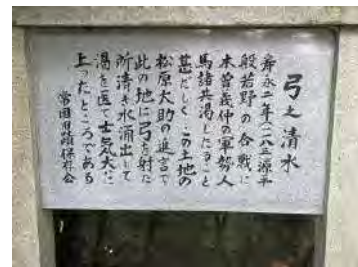 弓之清水
寿永二年(一一八三)源平
般若野の合戦に
木曽義仲の軍勢人
馬諸共渇したること
甚だしく この土地の
松原大助の進言で
此の地に弓を射た
所清き水涌出して
渇を医て士気大いに
上ったところである
常国旧蹟保存会